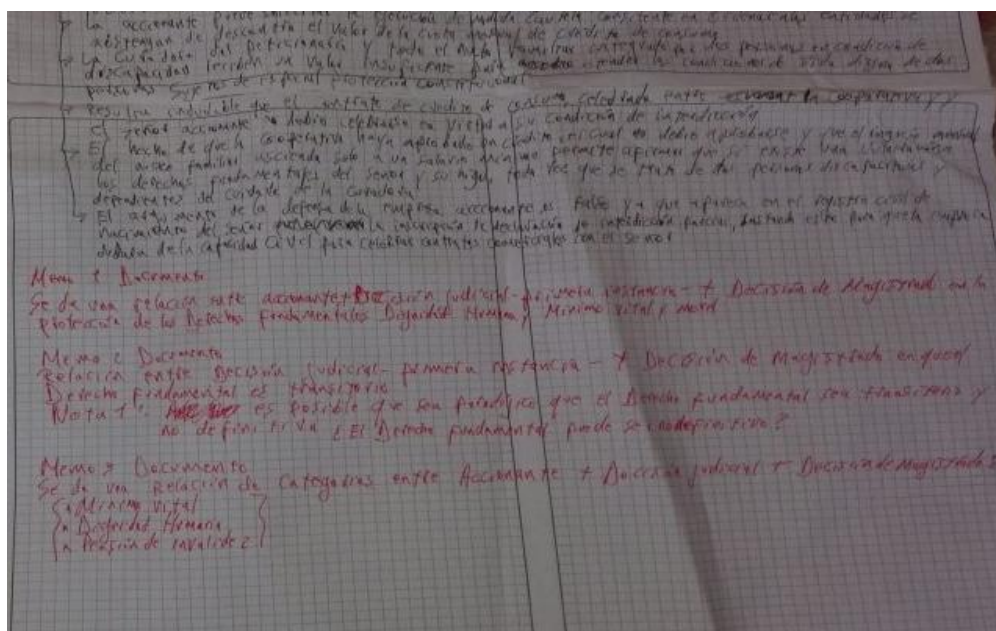 La accionante solicita la de medida cautelar consistente en ordenar a las entidades se
abstengan de descontar el valor de la cuota mensual de credito de consumo
La Curadora del peticionario y toda el nucleo familiar integrado por dos personas en condicion de
discapacidad reciben un valor insuficiente para atender las condiciones de vida digna de dos
personas sujetos de especial proteccion constitucional
Resulta indudible que el contrato de credito de consumo, celebrado entre la cooperativa y
el señor accionante no debio celebrarse en virtud a su condición de interdicción
El hecho de que la cooperativa haya aprobado un credito el cual no debio aprobarse y que el ingreso mensual
del nucleo familiar ascienda solo a un salario minimo permite afirmar que si existe una vulneración
los derechos fundamentales del señor y su hija, toda vez que se trata de dos personas discapacitadas y
dependientes del cuidado de la curadora
El argumento de la defensa de la empresa accionante es falso ya que aparece en el registro civil de
nacimiento del señor la inscripcion de declaración de interdicción judicial, bastaba esto para que la empresa
dudara de la capacidad civil para celebrar contratos comerciales con el señor
Memo 1 Documento
Se da una relación entre accionante + Decisión judicial - primera instancia - + Decisión de Magistrado en la
protección de los Derechos fundamentales Dignidad Humana, Minimo vital y movil
Memo 2 Documento
Relación entre Decisión judicial - primera instancia - + Decisión de Magistrado en que el
Derecho Fundamental es transitorio
Nota 1: es posible que sea paradojico que el Derecho fundamental sea transitorio y
no definitiva ¿El Derecho fundamental puede ser no definitivo?
Memo 3 Documento
Se da una Relación de Categorias entre Accionante + Decisión judicial + Decisión de Magistrado
* Minimo vital
* Dignidad Humana
* Pensión de invalidez